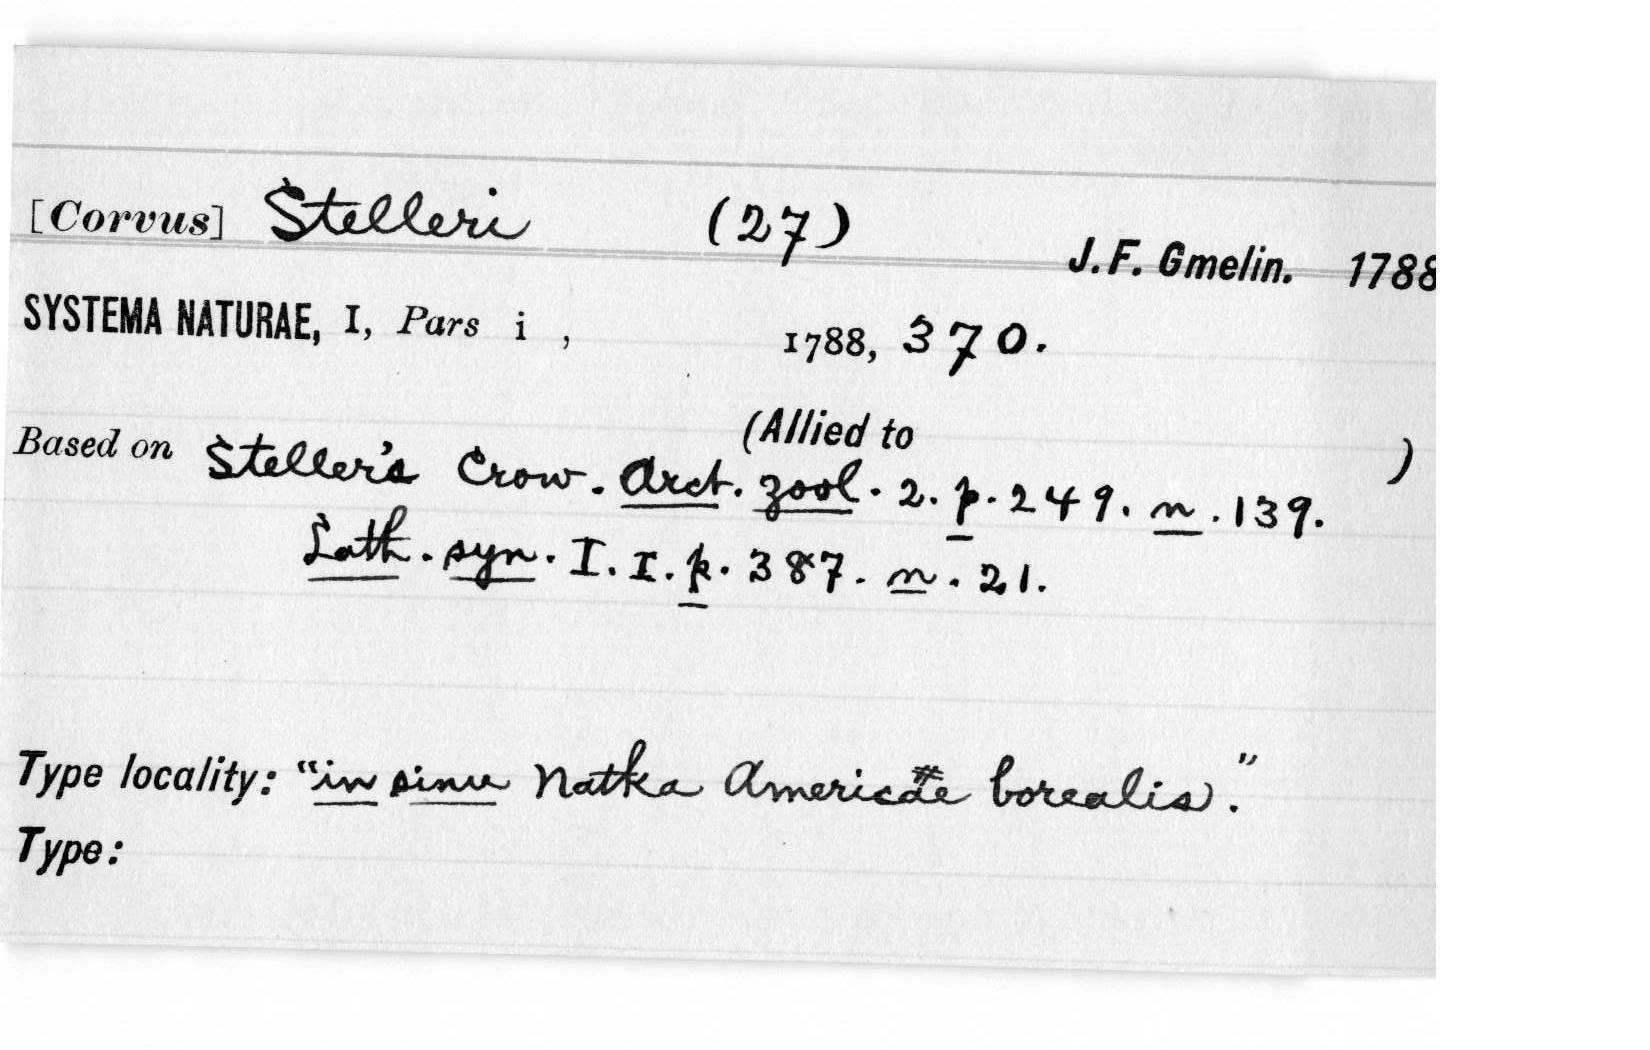 [Corvus] Stelleri (27)
J. F. Gmelin. 1788
SYSTEMA NATURAE, I, Pars i , 1788, 370.
(Allied to )
Based on Steller's Crow. Arct. zool. 2. p. 249. n. 139.
Lath. syn. I. I. p. 387. n. 21.
Type locality: "in sinu Natka Americae borealis."
Type: